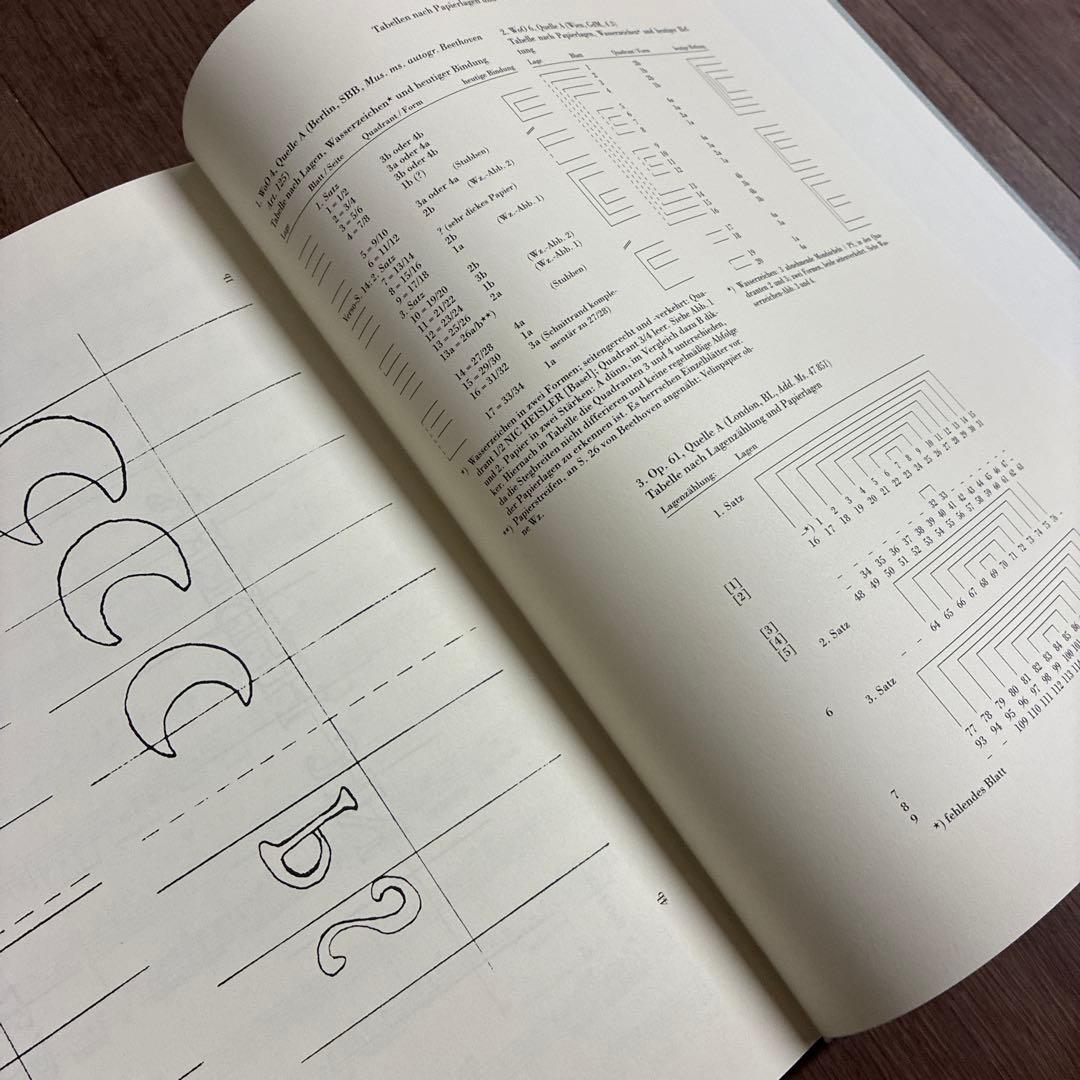 Tabellen nach Papierlagen und
1. WoO 4, Quelle A (Berlin, SBB, Mus. ms. autogr. Beethoven
Art. 125)
Tabelle nach Lagen, Wasserzeichen* und heutiger Bindung
Lage Blatt / Seite Quadrant / Form heutige Bindung
1. Satz
1 = 1/2 3b oder 4b
2 = 3/4 3a oder 4a
3 = 5/6 3b oder 4b
4 = 7/8 1b (?)
(Stubben)
5 = 9/10 3a oder 4a (Wz.-Abb. 2)
6 = 11/12 2b
Verso-S. 14: 2. Satz
7 = 13/14 ? (sehr dickes Papier)
8 = 15/16 2b (Wz.-Abb. 1)
9 = 17/18 1a
3. Satz
10 = 19/20 2b (Wz.-Abb. 2)
11 = 21/22 3b (Wz.-Abb. 1)
12 = 23/24 1b
13 = 25/26 2a (Stubben)
13a = 26a/b**)
14 = 27/28 4a
15 = 29/30 1a
16 = 31/32 3a (Schnittrand komple-
mentär zu 27/28)
17 = 33/34 1a
*) Wasserzeichen in zwei Formen; seitengerecht und -verkehrt: Qua-
drant 1/2 NIC HEISLER [Basel]; Quadrant 3/4 leer. Siehe Abb. 1
und 2. Papier in zwei Stärken: A dünn, im Vergleich dazu B dik-
ker. Hiernach in Tabelle die Quadranten 3 und 4 unterschieden,
da die Stegbreiten nicht differieren und keine regelmäßige Abfolge
der Papierlagen zu erkennen ist. Es herrschen Einzelblätter vor.
**) Papierstreifen, an S. 26 von Beethoven angenäht; Velinpapier oh-
ne Wz.
2. WoO 6, Quelle A (Wien, GdM, A 3)
Tabelle nach Papierlagen, Wasserzeichen* und heutiger Bin-
tung
Lage Blatt Quadrant / Form heutige Bindung
17
18
19
20
*) Wasserzeichen: 3 abnehmende Mondsicheln / PS, in den Qua-
dranten 2 und 3; zwei Formen, beide seitenverkehrt. Siehe Was-
serzeichen-Abb. 3 und 4.
3. Op. 61, Quelle A (London, BL, Add. Ms. 47 851)
Tabelle nach Lagenzählung und Papierlagen
Lagenzählung: Lagen
1. Satz
[1] –*) 1 2 3 4 5 6 7 8 9 10 11 12 13 14 15
[2] 16 17 18 19 20 21 22 23 24 25 26 27 28 29 30 31
[3] 32 33
[4] – 34 35 36 37 38 39 40 41 42 43 44 45 46 47 –
[5] 48 49 50 51 52 53 54 55 56 57 58 59 60 61 62 63
2. Satz
6 – 64 65 66 67 68 69 70 71 72 73 74 75 76 –
3. Satz
7 77 78 79 80 81 82 83 84 85 86
8 93 94 95 96 97 98 99 100 101
9 – – 109 110 111 112 113
*) fehlendes Blatt
1b
4b